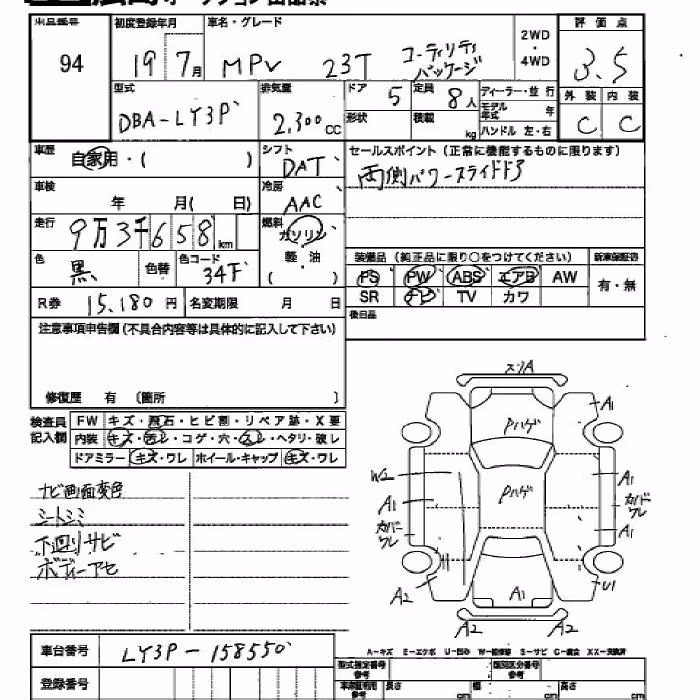 出品番号 94
初度登録年月 19 7月
車名・グレード MPV 23T ユーティリティ パッケージ
2WD・4WD
評価点 3.5
型式 DBA-LY3P
排気量 2,300cc
ドア 5 定員 8人
形状 積載 kg
ディーラー・並行
モデル年式 年
ハンドル 左・右
外装 C 内装 C
車歴 自家用・( )
シフト DAT
セールスポイント(正常に機能するものに限ります)
両側パワースライドドア
車検 年 月( 日)
冷房 AAC
走行 9万3千658km
燃料 ガソリン
軽・油
( )
色 黒 色替 色コード 34F
装備品(純正品に限り○をつけてください) 新車保証書
PS PW ABS エアB AW 有・無
SR ナビ TV カワ
R券 15,180円 名変期限 月 日
後日品
注意事項申告欄(不具合内容等は具体的に記入して下さい)
修復歴 有 〔箇所 〕
検査員記入欄
FW キズ・飛石・ヒビ割・リペア跡・X要
内装 キズ・汚レ・コゲ・穴・スレ・ヘタリ・破レ
ドアミラー キズ・ワレ ホイール・キャップ キズ・ワレ
ナビ画面変色
シートシミ
下廻りサビ
ボディーアセ
スリA
Pハゲ
A1
W2
A1
Pハゲ
A1
カバーワレ
A1
A2
A1
U1
A2 A2
車台番号 LY3P-158550
A-キズ E-エクボ U-凹み W-補修跡 S-サビ C-腐食 XX-交換済
登録番号
型式指定番号 参考
類別区分番号 参考
車検証利用 参考 長さ cm 幅 cm 高さ cm